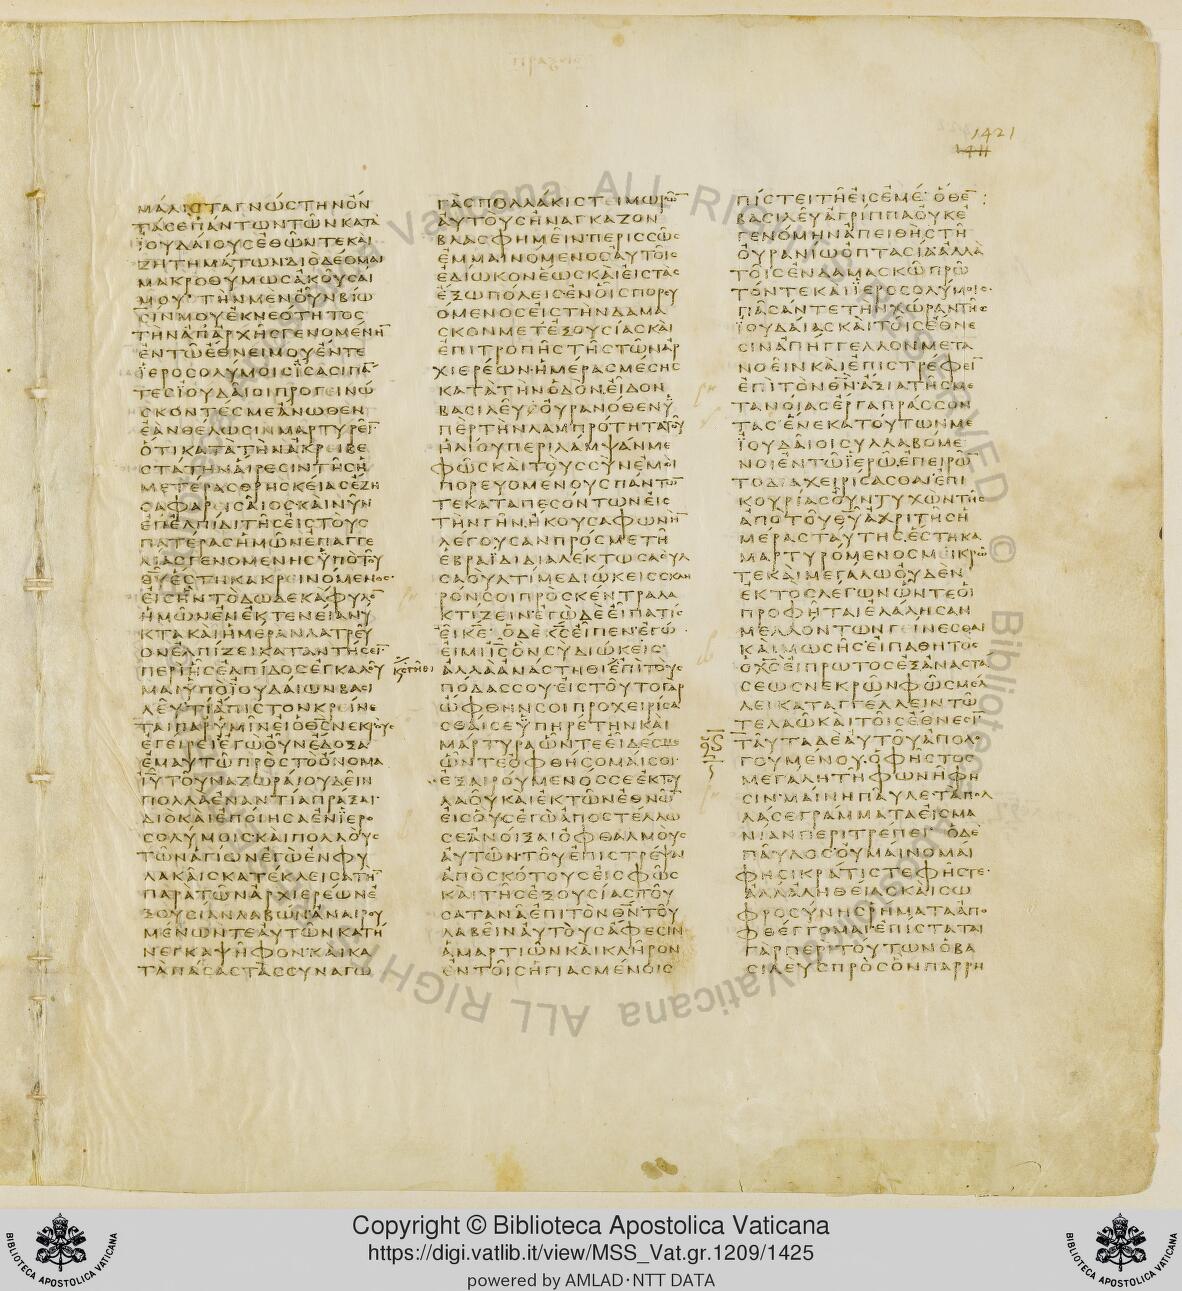 1421
1411
ΜΑΛΙϹΤΑΓΝΩϹΤΗΝΟΝ
ΤΑϹΕΠΑΝΤΩΝΤΩΝΚΑΤΑ
ΙΟΥΔΑΙΟΥϹΕΘΩΝΤΕΚΑΙ
ΖΗΤΗΜΑΤΩΝΔΙΟΔΕΟΜΑΙ
ΜΑΚΡΟΘΥΜΩϹΑΚΟΥϹΑΙ
ΜΟΥ ΤΗΝΜΕΝΟΥΝΒΙΩ
ϹΙΝΜΟΥΕΚΝΕΟΤΗΤΟϹ
ΤΗΝΑΠΑΡΧΗϹΓΕΝΟΜΕΝΗ̅
ΕΝΤΩΕΘΝΕΙΜΟΥΕΝΤΕ
ΙΕΡΟϹΟΛΥΜΟΙϹΙϹΑϹΙΠΑ̅
ΤΕϹΙΟΥΔΑΙΟΙΠΡΟΓΕΙΝΩ
ϹΚΟΝΤΕϹΜΕΑΝΩΘΕΝ
ΕΑΝΘΕΛΩϹΙΝΜΑΡΤΥΡΕΙ̅
ΟΤΙΚΑΤΑΤΗΝΑΚΡΕΙΒΕ
ϹΤΑΤΗΝΑΙΡΕϹΙΝΤΗϹΗ
ΜΕΤΕΡΑϹΘΡΗϹΚΕΙΑϹΕΖΗ
ϹΑΦΑΡΕΙϹΑΙΟϹΚΑΙΝΥΝ
ΕΠΕΛΠΙΔΙΤΗϹΕΙϹΤΟΥϹ
ΠΑΤΕΡΑϹΗΜΩΝΕΠΑΓΓΕ
ΛΙΑϹΓΕΝΟΜΕΝΗϹΥΠΟΤΟΥ
Θ̅Υ̅ΕϹΤΗΚΑΚΡΕΙΝΟΜΕΝΟϹ
ΕΙϹΗΝΤΟΔΩΔΕΚΑΦΥΛΟ̅
ΗΜΩΝΕΝΕΚΤΕΝΕΙΑΝΥ
ΚΤΑΚΑΙΗΜΕΡΑΝΛΑΤΡΕΥ
ΟΝΕΛΠΙΖΕΙΚΑΤΑΝΤΗϹΕΙ̅
ΠΕΡΙΗϹΕΛΠΙΔΟϹΕΓΚΑΛΟΥ
ΜΑΙΥΠΟΙΟΥΔΑΙΩΝΒΑϹΙ
ΛΕΥΤΙΑΠΙϹΤΟΝΚΡΕΙΝΕ
ΤΑΙΠΑΡΥΜΙΝΕΙΟΘ̅Ϲ̅ΝΕΚΡΟΥϹ
ΕΓΕΙΡΕΙΕΓΩΟΥΝΕΔΟΞΑ
ΕΜΑΥΤΩΠΡΟϹΤΟΟΝΟΜΑ
Ι̅Υ̅ΤΟΥΝΑΖΩΡΑΙΟΥΔΕΙΝ
ΠΟΛΛΑΕΝΑΝΤΙΑΠΡΑΞΑΙ
ΔΙΟΚΑΙΕΠΟΙΗϹΑΕΝΙΕΡΟ
ϹΟΛΥΜΟΙϹΚΑΙΠΟΛΛΟΥϹ
ΤΩΝΑΓΙΩΝΕΓΩΕΝΦΥ
ΛΑΚΑΙϹΚΑΤΕΚΛΕΙϹΑΤΗ̅
ΠΑΡΑΤΩΝΑΡΧΙΕΡΕΩΝΕ
ΞΟΥϹΙΑΝΛΑΒΩΝΑΝΑΙΡΟΥ
ΜΕΝΩΝΤΕΑΥΤΩΝΚΑΤΗ
ΝΕΓΚΑΨΗΦΟΝ ΚΑΙΚΑ
ΤΑΠΑϹΑϹΤΑϹϹΥΝΑΓΩ
ΓΑϹΠΟΛΛΑΚΙϹΤΕΙΜΩΡΩ̅
ΑΥΤΟΥϹΗΝΑΓΚΑΖΟΝ
ΒΛΑϹΦΗΜΕΙΝΠΕΡΙϹϹΩϹ
ΕΜΜΑΙΝΟΜΕΝΟϹΑΥΤΟΙϹ
ΕΔΙΩΚΟΝΕΩϹΚΑΙΕΙϹΤΑϹ
ΕΞΩΠΟΛΕΙϹΕΝΟΙϹΠΟΡΕΥ
ΟΜΕΝΟϹΕΙϹΤΗΝΔΑΜΑ
ϹΚΟΝΜΕΤΕΞΟΥϹΙΑϹΚΑΙ
ΕΠΙΤΡΟΠΗϹΤΗϹΤΩΝΑΡ
ΧΙΕΡΕΩΝ ΗΜΕΡΑϹΜΕϹΗϹ
ΚΑΤΑΤΗΝΟΔΟΝΕΙΔΟΝ
ΒΑϹΙΛΕΥΟΥΡΑΝΟΘΕΝΥ
ΠΕΡΤΗΝΛΑΜΠΡΟΤΗΤΑΤΟΥ
ΗΛΙΟΥΠΕΡΙΛΑΜΨΑΝΜΕ
ΦΩϹΚΑΙΤΟΥϹϹΥΝΕΜΟΙ
ΠΟΡΕΥΟΜΕΝΟΥϹΠΑΝΤΩ̅
ΤΕΚΑΤΑΠΕϹΟΝΤΩΝΕΙϹ
ΤΗΝΓΗΝ ΗΚΟΥϹΑΦΩΝΗ̅
ΛΕΓΟΥϹΑΝΠΡΟϹΜΕΤΗ
ΕΒΡΑΙΔΙΔΙΑΛΕΚΤΩϹΑΟΥΛ
ϹΑΟΥΛΤΙΜΕΔΙΩΚΕΙϹϹΚΛΗ
ΡΟΝϹΟΙΠΡΟϹΚΕΝΤΡΑΛΑ
ΚΤΙΖΕΙΝ ΕΓΩΔΕΕΙΠΑΤΙϹ
ΕΙΚΕ ΟΔΕΚ̅Ϲ̅ΕΙΠΕΝ ΕΓΩ
ΕΙΜΙΙ̅Ϲ̅ΟΝϹΥΔΙΩΚΕΙϹ
ΑΛΛΑΑΝΑϹΤΗΘΙΕΠΙΤΟΥϹ
ΠΟΔΑϹϹΟΥ ΕΙϹΤΟΥΤΟΓΑΡ
ΩΦΘΗΝϹΟΙΠΡΟΧΕΙΡΙϹΑ
ϹΘΑΙϹΕΥΠΗΡΕΤΗΝΚΑΙ
ΜΑΡΤΥΡΑΩΝΤΕΕΙΔΕϹΜΕ
ΩΝΤΕΟΦΘΗϹΟΜΑΙϹΟΙ
ΕΞΑΙΡΟΥΜΕΝΟϹϹΕΕΚΤΟΥ
ΛΑΟΥΚΑΙΕΚΤΩΝΕΘΝΩ̅
ΕΙϹΟΥϹΕΓΩΑΠΟϹΤΕΛΛΩ
ϹΕΑΝΟΙΞΑΙΟΦΘΑΛΜΟΥϹ
ΑΥΤΩΝ ΤΟΥΕΠΙϹΤΡΕΨΑΙ
ΑΠΟϹΚΟΤΟΥϹΕΙϹΦΩϹ
ΚΑΙΤΗϹΕΞΟΥϹΙΑϹΤΟΥ
ϹΑΤΑΝΑΕΠΙΤΟΝΘ̅Ν̅ΤΟΥ
ΛΑΒΕΙΝΑΥΤΟΥϹΑΦΕϹΙΝ
ΑΜΑΡΤΙΩΝΚΑΙΚΛΗΡΟΝ
ΕΝΤΟΙϹΗΓΙΑϹΜΕΝΟΙϹ
ΠΙϹΤΕΙΤΗΕΙϹΕΜΕ ΟΘΕ̅
ΒΑϹΙΛΕΥΑΓΡΙΠΠΑΟΥΚΕ
ΓΕΝΟΜΗΝΑΠΕΙΘΗϹΤΗ
ΟΥΡΑΝΙΩΟΠΤΑϹΙΑΑΛΛΑ
ΤΟΙϹΕΝΔΑΜΑϹΚΩΠΡΩ
ΤΟΝΤΕΚΑΙΙΕΡΟϹΟΛΥΜΟΙϹ
ΠΑϹΑΝΤΕΤΗΝΧΩΡΑΝΤΗϹ
ΙΟΥΔΑΙΑϹΚΑΙΤΟΙϹΕΘΝΕ
ϹΙΝΑΠΗΓΓΕΛΛΟΝΜΕΤΑ
ΝΟΕΙΝΚΑΙΕΠΙϹΤΡΕΦΕΙ̅
ΕΠΙΤΟΝΘ̅Ν̅ ΑΞΙΑΤΗϹΜΕ
ΤΑΝΟΙΑϹΕΡΓΑΠΡΑϹϹΟΝ
ΤΑϹ ΕΝΕΚΑΤΟΥΤΩΝΜΕ
ΙΟΥΔΑΙΟΙϹΥΛΛΑΒΟΜΕ
ΝΟΙΕΝΤΩΙΕΡΩ ΕΠΕΙΡΩ̅
ΤΟΔΙΑΧΕΙΡΙϹΑϹΘΑΙ ΕΠΙ
ΚΟΥΡΙΑϹΟΥΝΤΥΧΩΝΤΗϹ
ΑΠΟΤΟΥΘ̅Υ̅ΑΧΡΙΤΗϹΗ
ΜΕΡΑϹΤΑΥΤΗϹΕϹΤΗΚΑ
ΜΑΡΤΥΡΟΜΕΝΟϹΜΕΙΚΡΩ
ΤΕΚΑΙΜΕΓΑΛΩΟΥΔΕΝ
ΕΚΤΟϹΛΕΓΩΝΩΝΤΕΟΙ
ΠΡΟΦΗΤΑΙΕΛΑΛΗϹΑΝ
ΜΕΛΛΟΝΤΩΝΓΕΙΝΕϹΘΑΙ
ΚΑΙΜΩϹΗϹΕΙΠΑΘΗΤΟϹ
ΟΧ̅Ϲ̅ΕΙΠΡΩΤΟϹΕΞΑΝΑϹΤΑ
ϹΕΩϹΝΕΚΡΩΝΦΩϹΜΕΛ
ΛΕΙΚΑΤΑΓΓΕΛΛΕΙΝΤΩ
ΤΕΛΑΩΚΑΙΤΟΙϹΕΘΝΕϹΙ̅
ΤΑΥΤΑΔΕΑΥΤΟΥΑΠΟΛΟ
ΓΟΥΜΕΝΟΥ ΟΦΗϹΤΟϹ
ΜΕΓΑΛΗΤΗΦΩΝΗΦΗ
ϹΙΝ ΜΑΙΝΗΠΑΥΛΕΤΑΠΟΛ
ΛΑϹΕΓΡΑΜΜΑΤΑΕΙϹΜΑ
ΝΙΑΝΠΕΡΙΤΡΕΠΕΙ ΟΔΕ
ΠΑΥΛΟϹΟΥΜΑΙΝΟΜΑΙ
ΦΗϹΙΚΡΑΤΙϹΤΕΦΗϹΤΕ
ΑΛΛΑΑΛΗΘΕΙΑϹΚΑΙϹΩ
ΦΡΟϹΥΝΗϹΡΗΜΑΤΑΑΠΟ
ΦΘΕΓΓΟΜΑΙ ΕΠΙϹΤΑΤΑΙ
ΓΑΡΠΕΡΙΤΟΥΤΩΝΟΒΑ
ϹΙΛΕΥϹΠΡΟϹΟΝΠΑΡΡΗ
Copyright © Biblioteca Apostolica Vaticana
https://digi.vatlib.it/view/MSS_Vat.gr.1209/1425
powered by AMLAD·NTT DATA
BIBLIOTECA APOSTOLICA VATICANA
BIBLIOTECA APOSTOLICA VATICANA